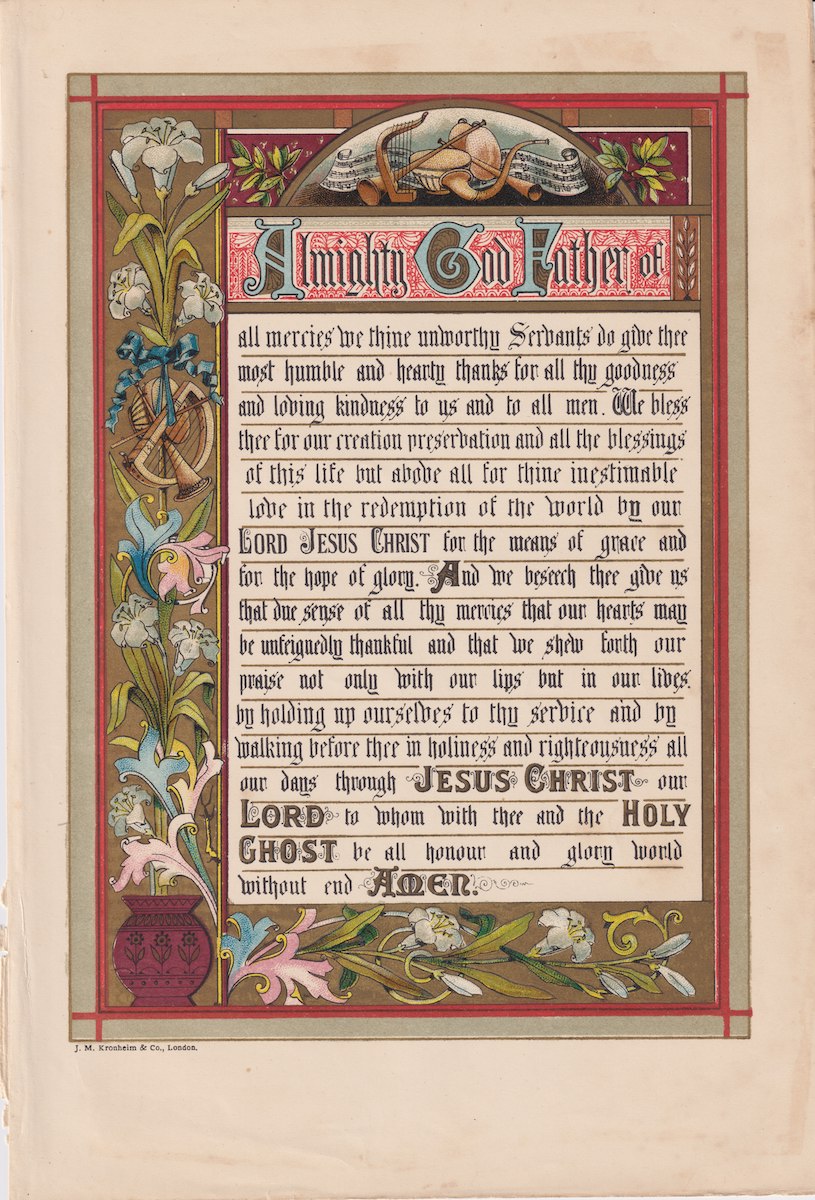 Almighty God Father of
all mercies we thine unworthy Servants do give thee
most humble and hearty thanks for all thy goodness
and loving kindness to us and to all men. We bless
thee for our creation preservation and all the blessings
of this life but above all for thine inestimable
love in the redemption of the world by our
LORD JESUS CHRIST for the means of grace and
for the hope of glory. And we beseech thee give us
that due sense of all thy mercies that our hearts may
be unfeignedly thankful and that we shew forth our
praise not only with our lips but in our lives.
by holding up ourselves to thy service and by
walking before thee in holiness and righteousness all
our days through JESUS CHRIST our
LORD to whom with thee and the HOLY
GHOST be all honour and glory world
without end AMEN.
J. M. Kronheim & Co., London.